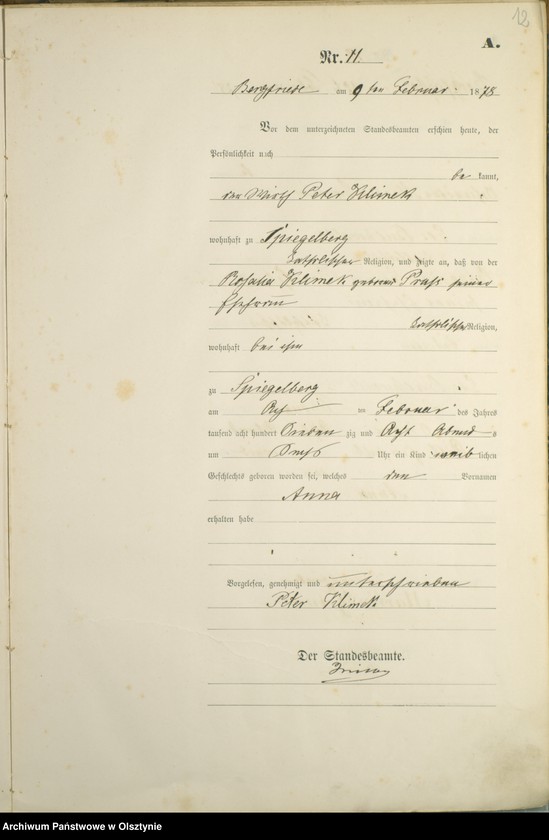 12
A.
Nr. 11.
Bergfriede am 9ten Februar 1878
Vor dem unterzeichneten Standesbeamten erschien heute, der
Persönlichkeit nach
be kannt,
der Wirth Peter Klimek
wohnhaft zu Spiegelberg
katholischer Religion, und zeigte an, daß von der
Rosalia Klimek geborene seiner
Ehefrau
katholischer Religion,
wohnhaft bei ihm
zu Spiegelberg
am Februar des Jahres
tausend acht hundert Sieben zig und Acht Abends
um Uhr ein Kind weib lichen
Geschlechts geboren worden sei, welches den Vornamen
Anna
erhalten habe
Vorgelesen, genehmigt und unterschrieben
Peter Klimek
Der Standesbeamte.
Archiwum Państwowe w Olsztynie